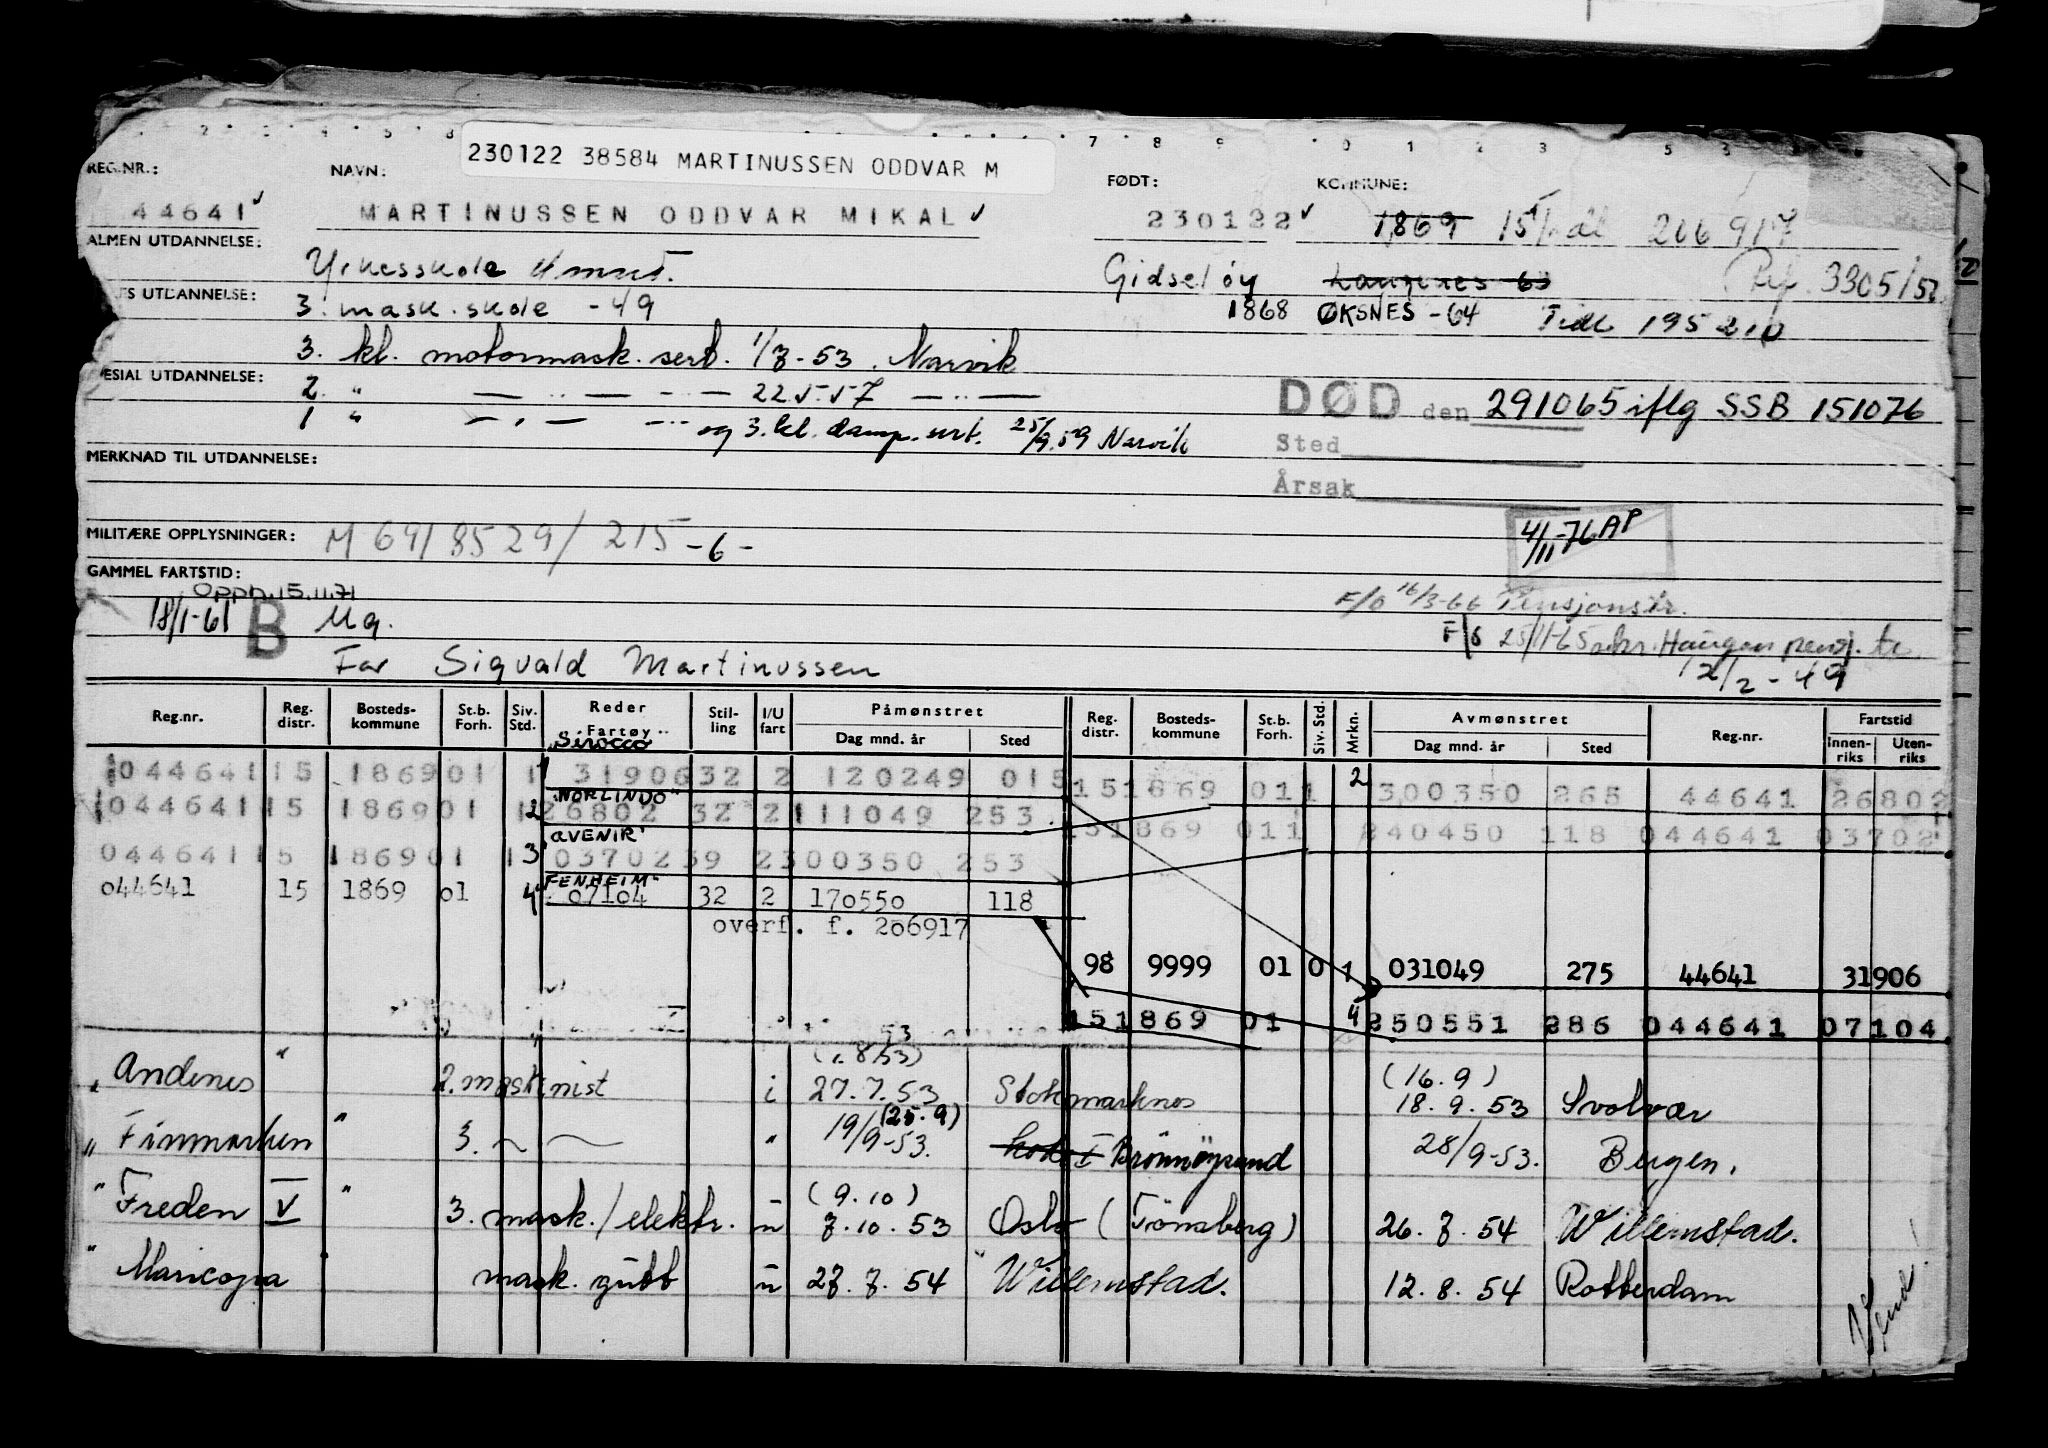 230122 38584 MARTINUSSEN ODDVAR M
REG.NR.: NAVN: FØDT: KOMMUNE:
44641 MARTINUSSEN ODDVAR MIKAL 230122 1869 206917
ALMEN UTDANNELSE: Yrkesskole Gidseløy Langenes 63 3305/52
UTDANNELSE: 3. mask. skole -49 1868 ØKSNES -64 Tidl 195210
3. kl. motormask. sert. 1/7-53. Narvik
SIAL UTDANNELSE: 2. " — " — " — 22.5.57 — " —
DØD den 291065 iflg SSB 151076
1 " — " — " og 3. kl. damp. sert. 25/9.59 Narvik
Sted
MERKNAD TIL UTDANNELSE:
Årsak
MILITÆRE OPPLYSNINGER: M 691 8529/215 -6-
4/11-76 AP
GAMMEL FARTSTID:
Oppb. 15.11.71
18/1-61 B Ug. F/O 16/3-66 Pensjonstr.
F/O 25/11-65 Haugen pensj. tr.
Far Sigvald Martinussen 12/2-49
Reg.nr. Reg. distr. Bosteds-kommune St.b. Forh. Siv. Std. Reder Fartøy Stil-ling I/U fart Påmønstret Dag mnd. år Sted Reg. distr. Bosteds-kommune St.b. Forh. Siv. Std. Mrkn. Avmønstret Dag mnd. år Sted Reg.nr. Fartstid Innen-riks Uten-riks
"Sirocco
044641 15 1869 01 1 31906 32 2 120249 015 15 1869 01 1 2 300350 265 44641 26802
"NORLINDO"
044641 15 1869 01 1 2 26802 32 2 111049 253 151869 011 240450 118 044641 03702
"AVENIR"
044641 15 1869 01 1 3 03702 39 2 300350 253
"FENHEIM"
044641 15 1869 01 4 07104 32 2 170550 118
overf. f. 206917
98 9999 01 0 1 031049 275 44641 31906
151869 01 4 250551 286 044641 07104
53
" Andenes " 2. maskinist i (1.8.53) 27.7.53 Stokmarknes (16.9) 18.9.53 Svolvær
" Finmarken " 3. — " 19/9-53. (25.9) Brönnöysund 28/9-53. Bergen.
" Freden V " 3. mask./elektr. u (9.10) 7.10.53 Oslo (Tönsberg) 26.7.54 Willemstad.
" Maricopa " mask. gutt u 27.7.54 Willemstad. 12.8.54 Rotterdam
Vend!